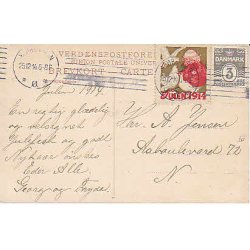 VERDENSPOSTFORE
UNION POSTALE UNIVER
BREVKORT - CARTE
25.12.14.5-8E.
DANMARK
3
JULEN 1914
Julen 1914
En rigtig glædelig
og velsignet
Julefest og godt
Nytaar ønskes
Eder Alle.
Georg og Frida.
Hr. A. Jensen
Aaboulevard 72
N